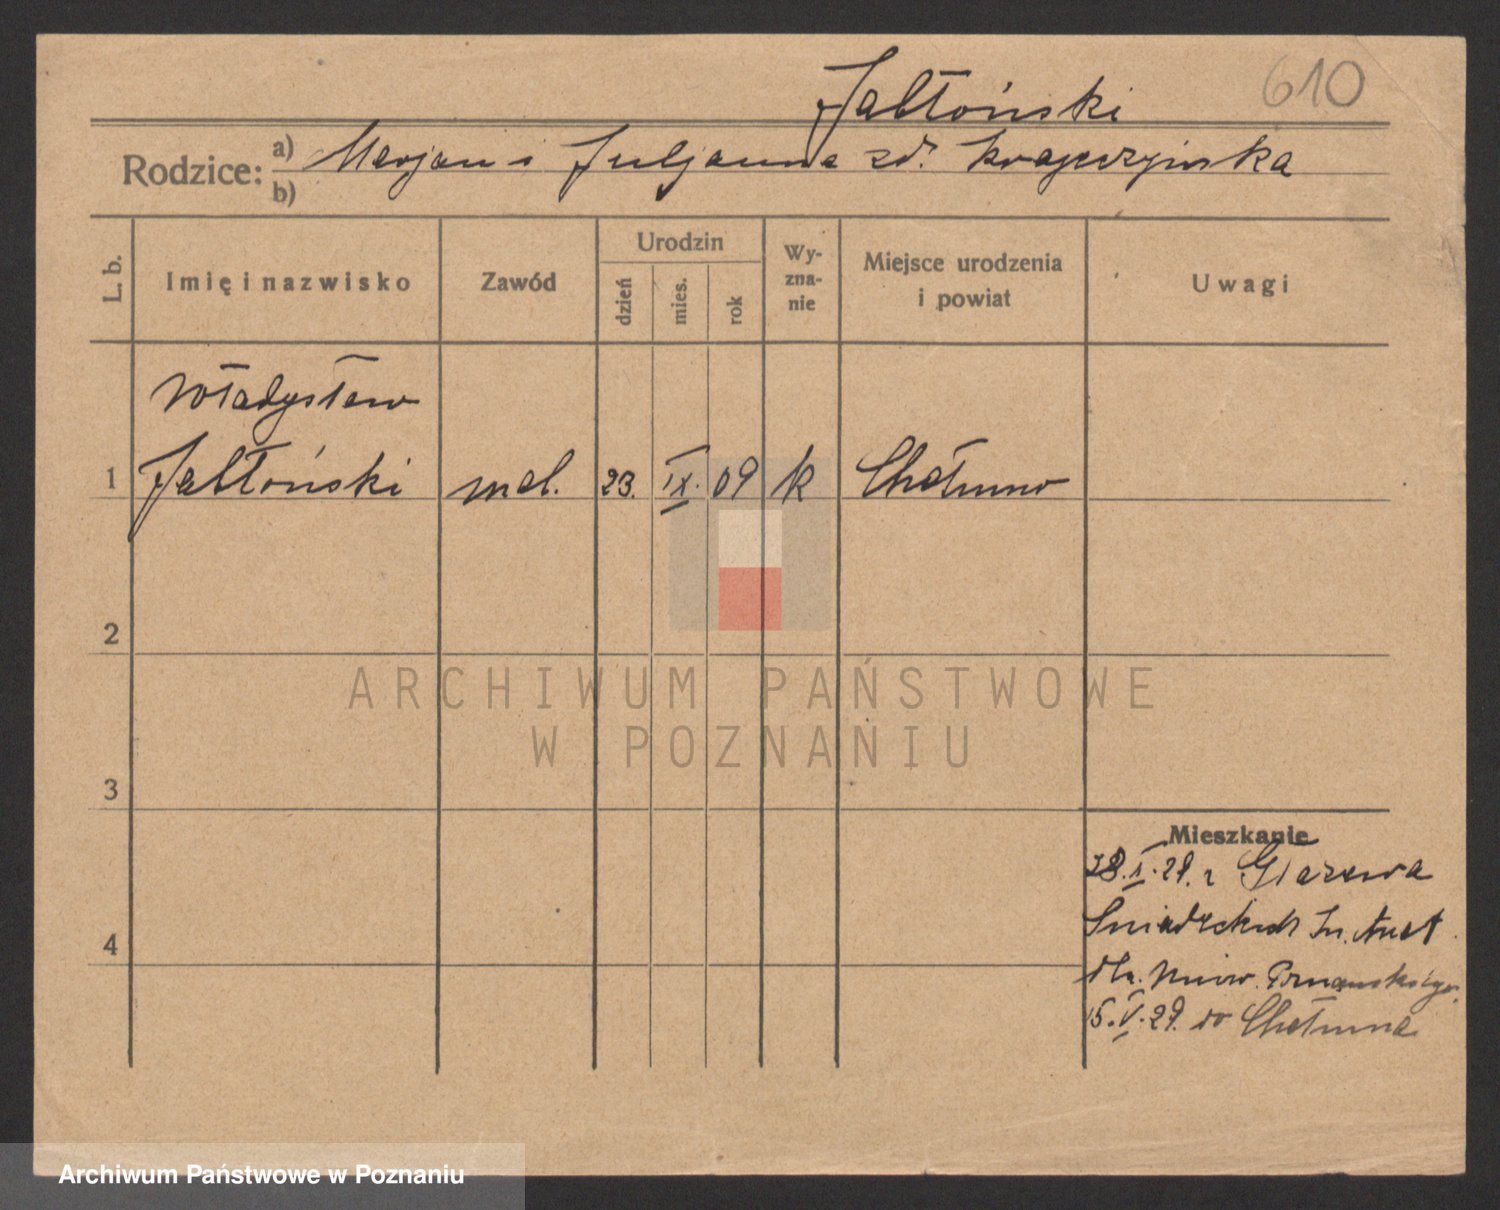 610
Jabłoński
Rodzice: a) Marjan i Juljanna zd. Krajczyńska
b)
L. b. Imię i nazwisko Zawód Urodzin dzień mies. rok Wyznanie Miejsce urodzenia i powiat Uwagi
Władysław
1 Jabłoński mal. 23. IX. 09 k Chełmno
2
ARCHIWUM PAŃSTWOWE
W POZNANIU
3
Mieszkanie
28. I. 29. z
Śniadeckich
dla. Uniw. Poznańskiego.
4
15. V. 29. do Chełmna
Archiwum Państwowe w Poznaniu